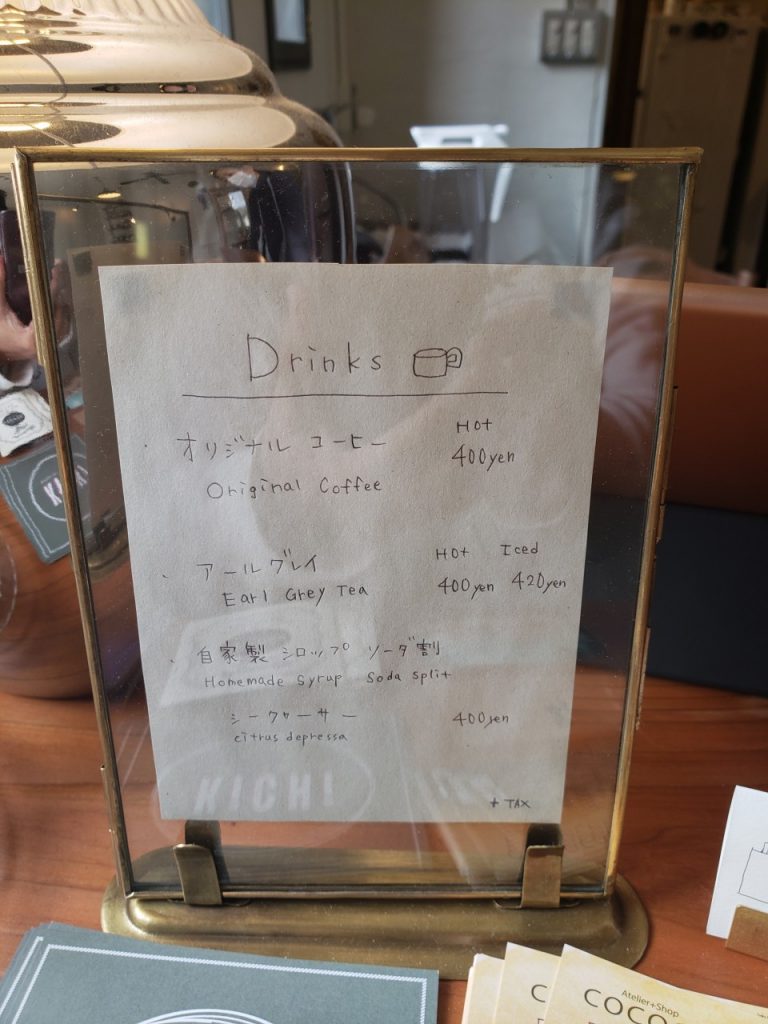 Drinks
オリジナル コーヒー
Hot
400yen
Original Coffee
アールグレイ
Hot Iced
Earl Grey Tea
400yen 420yen
自家製 シロップ ソーダ割
Homemade Syrup Soda Split
シークワーサー
400yen
citrus depressa
+ TAX
KICHI
KICHI
Atelier+Shop
COCO